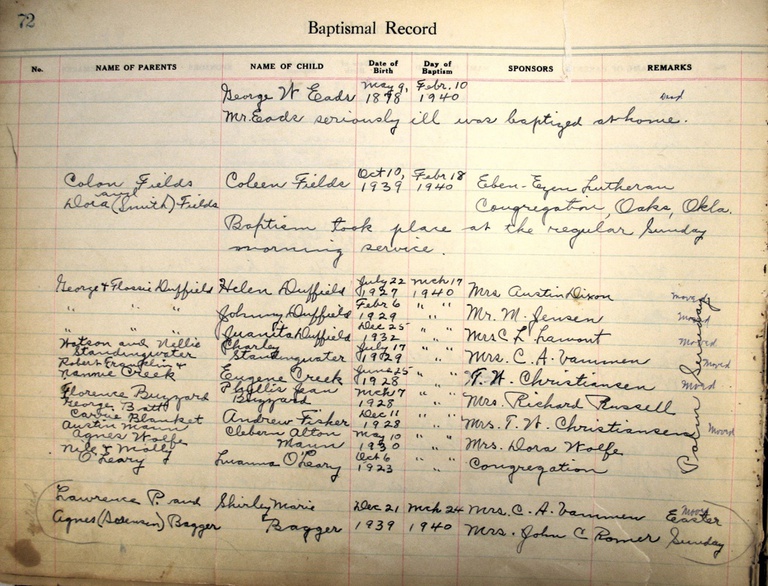 72
Baptismal Record
No. NAME OF PARENTS NAME OF CHILD Date of Birth Day of Baptism SPONSORS REMARKS
George W Eads May 9, 1898 Febr. 10 1940
Mr. Eads seriously ill was baptized at home.
Colon Fields and Coleen Fields Oct 10, 1939 Febr 18 1940 Eben-Ezer Lutheran
Dora (Smith) Fields Congregation, Oaks, Okla.
Baptism took place at the regular Sunday
morning service.
George & Flossie Duffield Helen Duffield July 22 1927 Mch 17 1940 Mrs Austin Dixon moved
" " " Johnny Duffield Febr 6 1929 " " Mr. M. Jensen moved
" " " Juanita Duffield Dec 25 1932 " " Mrs C L Lamont moved
Watson and Nellie Standingwater Charley Standingwater July 17 1929 " " Mrs. C. A. Vammen moved
Robert Franklin & Nannie Creek Eugene Creek June 25 1928 " " T. W. Christiansen moved
Florence Buzzard Phyllis Jean Buzzard Mch 17 1928 " " Mrs. Richard Russell
George Carrie Blanket Andrew Fisker Dec 11 1928 " " Mrs. T. W. Christiansen moved
Austin Mann Agnes Wolfe Cleborn Alton Mann May 10 1930 " " Mrs. Dora Wolfe
& Molly O'Leary Luanna O'Leary Oct 6 1923 " " Congregation
Palm Sunday
Lawrence P. and Shirley Marie Dec 21 Mch 24 Mrs. C. A. Vammen moved Easter
Agnes (Sorensen) Bagger Bagger 1939 1940 Mrs. John C Romer Sunday